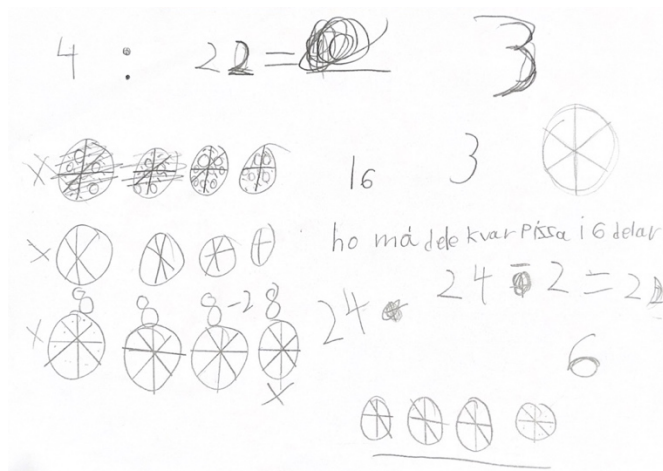 4 : 22 =
3
16 3
ho må dele kvar Pissa i 6 delar
8 8 8-2 8
24 24 - 2 = 22
6